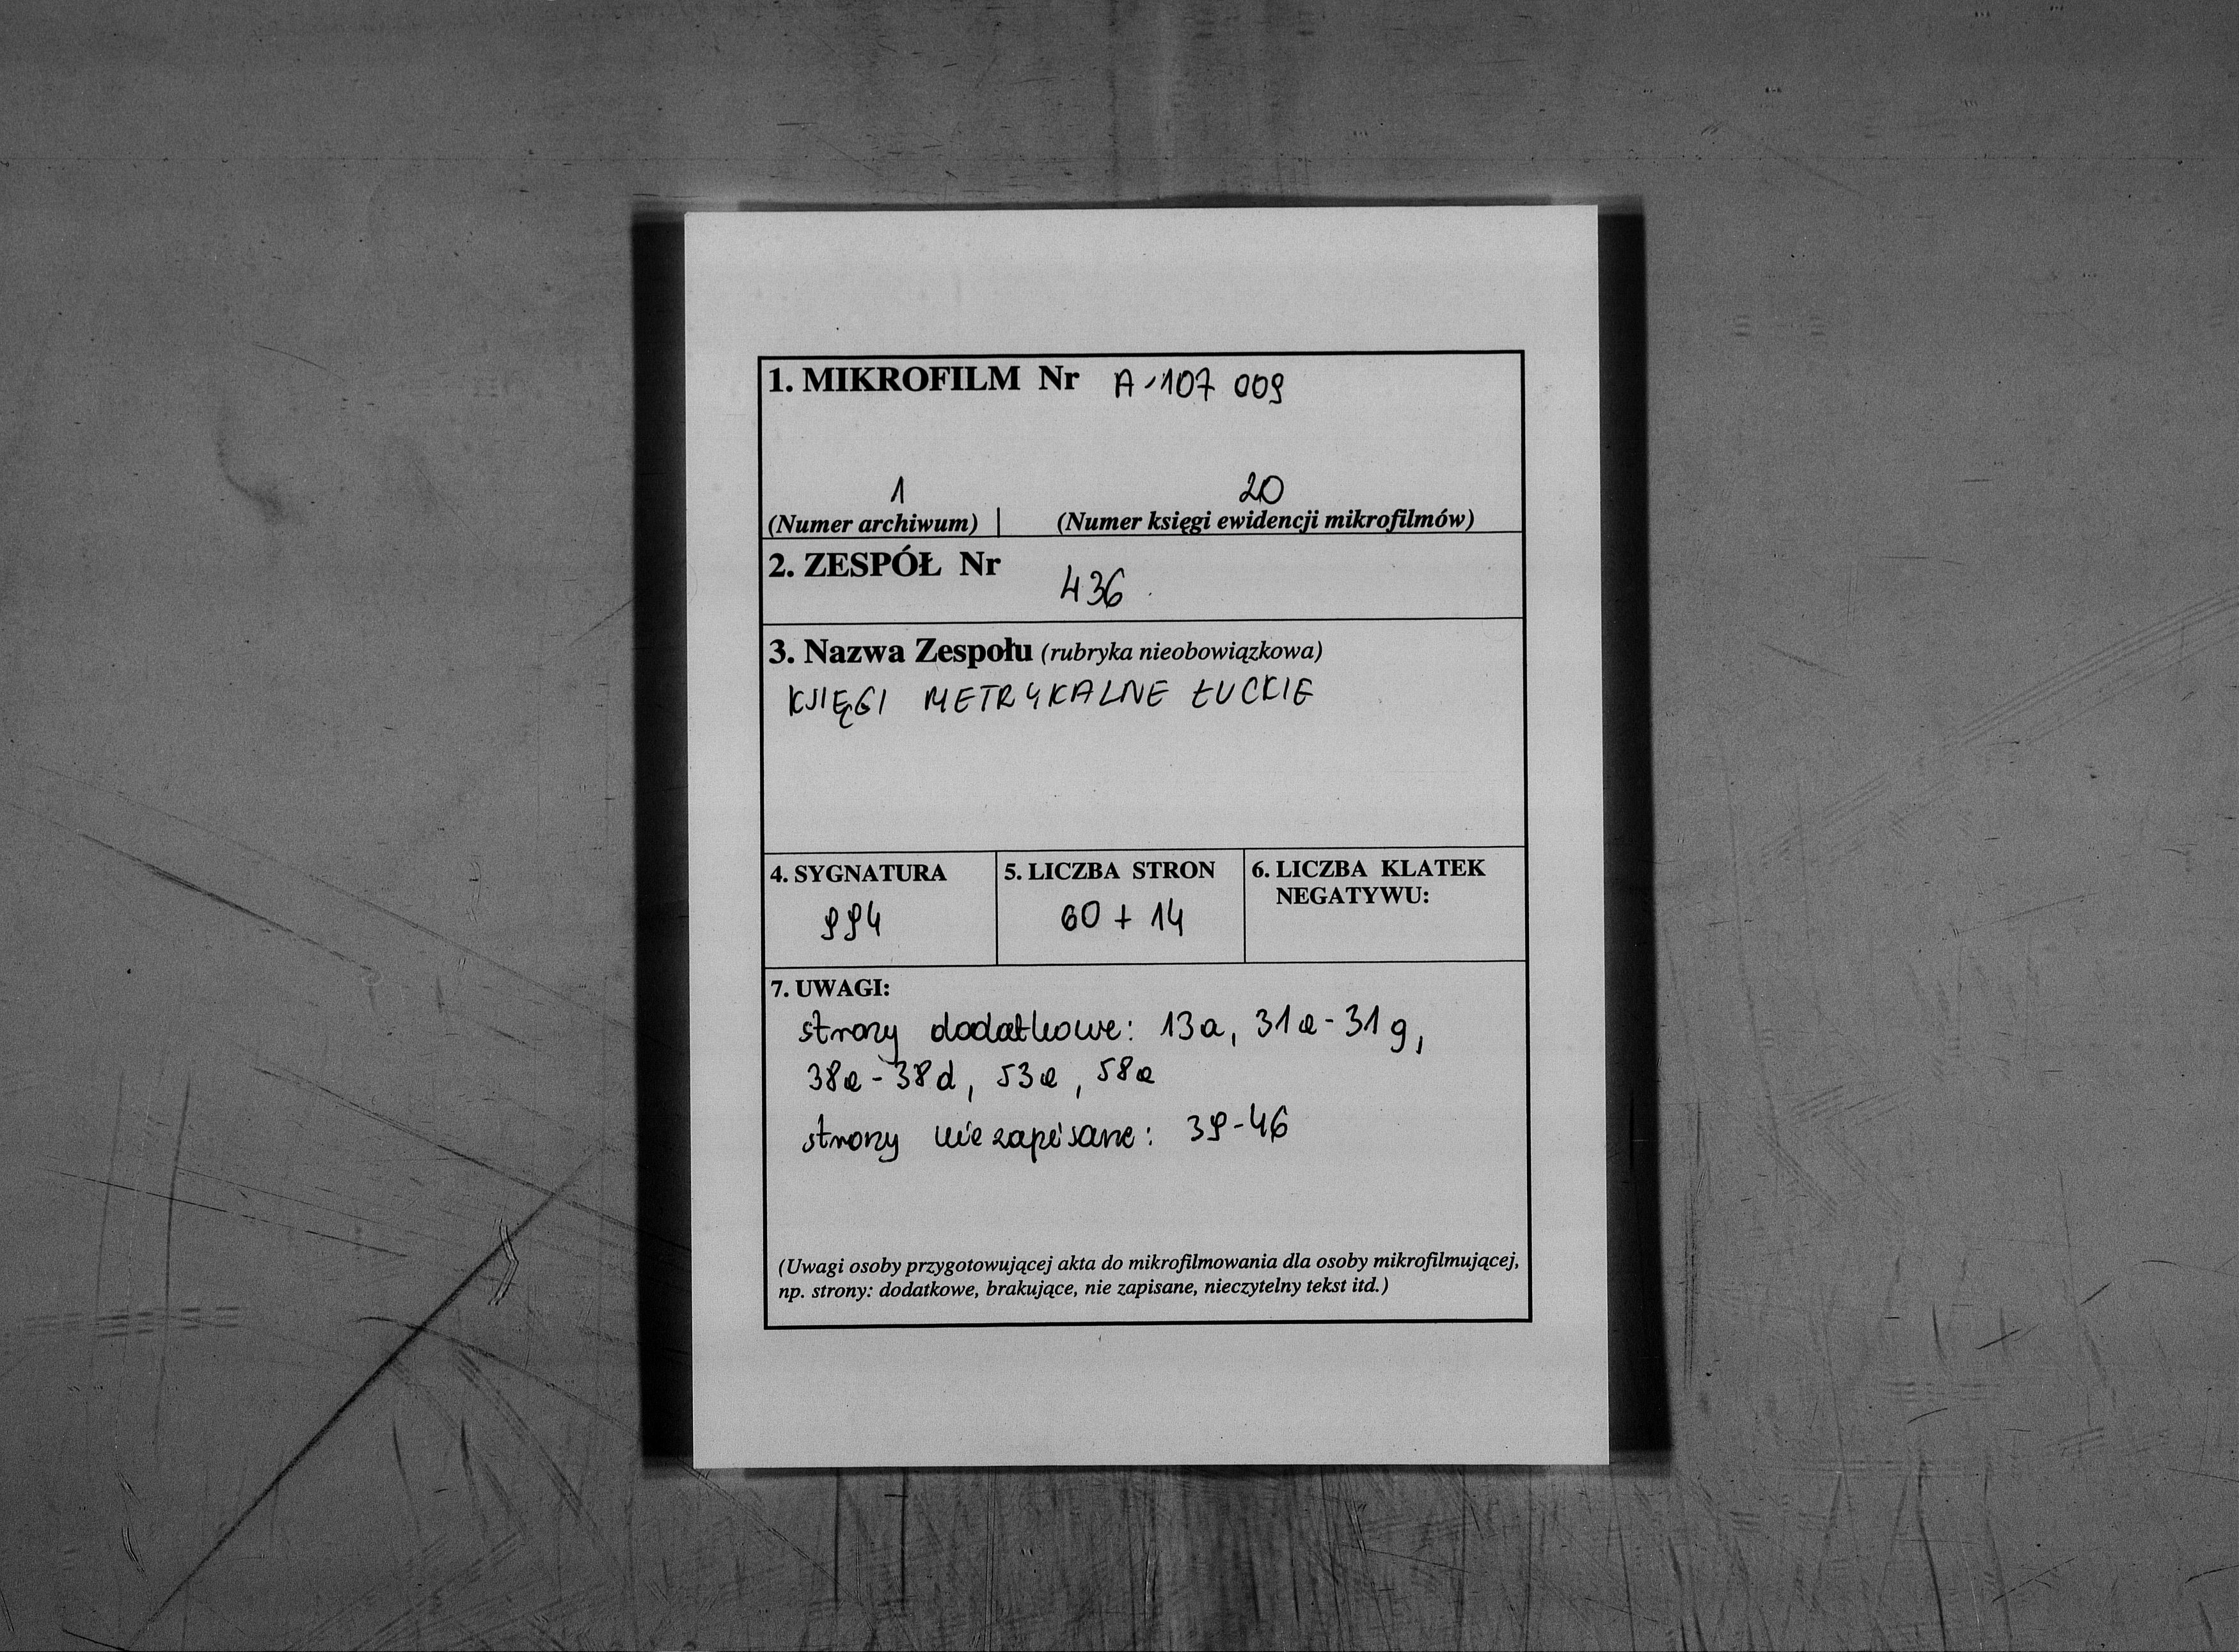 1. MIKROFILM Nr A-107 009
1 20
(Numer archiwum) | (Numer księgi ewidencji mikrofilmów)
2. ZESPÓŁ Nr 436
3. Nazwa Zespołu (rubryka nieobowiązkowa)
KSIĘGI METRYKALNE ŁUCKIE
4. SYGNATURA 5. LICZBA STRON 6. LICZBA KLATEK
NEGATYWU:
994 60 + 14
7. UWAGI:
strony dodatkowe: 13a, 31a-31g,
38a-38d, 53a, 58a
strony nie zapisane: 39-46
(Uwagi osoby przygotowującej akta do mikrofilmowania dla osoby mikrofilmującej,
np. strony: dodatkowe, brakujące, nie zapisane, nieczytelny tekst itd.)